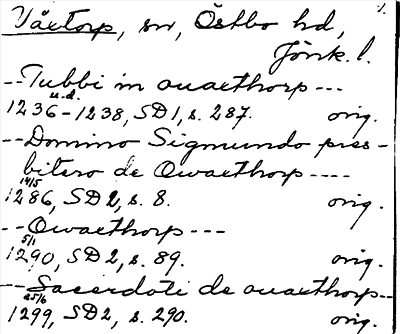 Våxtorp, sn, Östbo hd, 1.
Jönk. l.
-- Tubbi in ouaxthorp ---
u.d.
1236-1238, SD1, s. 287. orig.
-- Domino Sigmundo pres-
bitero de Owaxthorp ----
14/5
1286, SD2, s. 8. orig.
-- Owaxthorp ---
5/1
1290, SD2, s. 89. orig.
-- Sacerdoti de ouaxthorp --
25/6
1299, SD2, s. 290. orig.